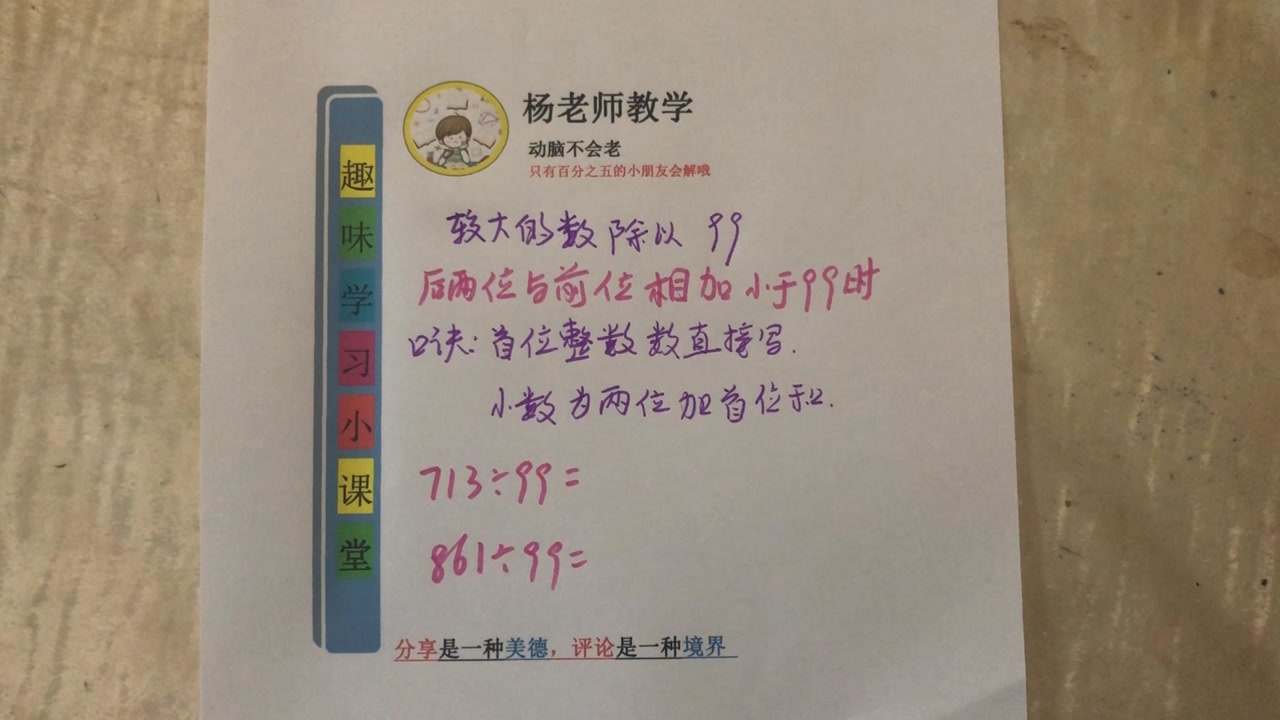 趣味学习小课堂
杨老师教学
动脑不会老
只有百分之五的小朋友会解哦
较大的数除以 99
后两位与前位相加小于99时
口诀:首位整数数直接写.
小数为两位加首位和.
713÷99=
861÷99=
分享是一种美德，评论是一种境界